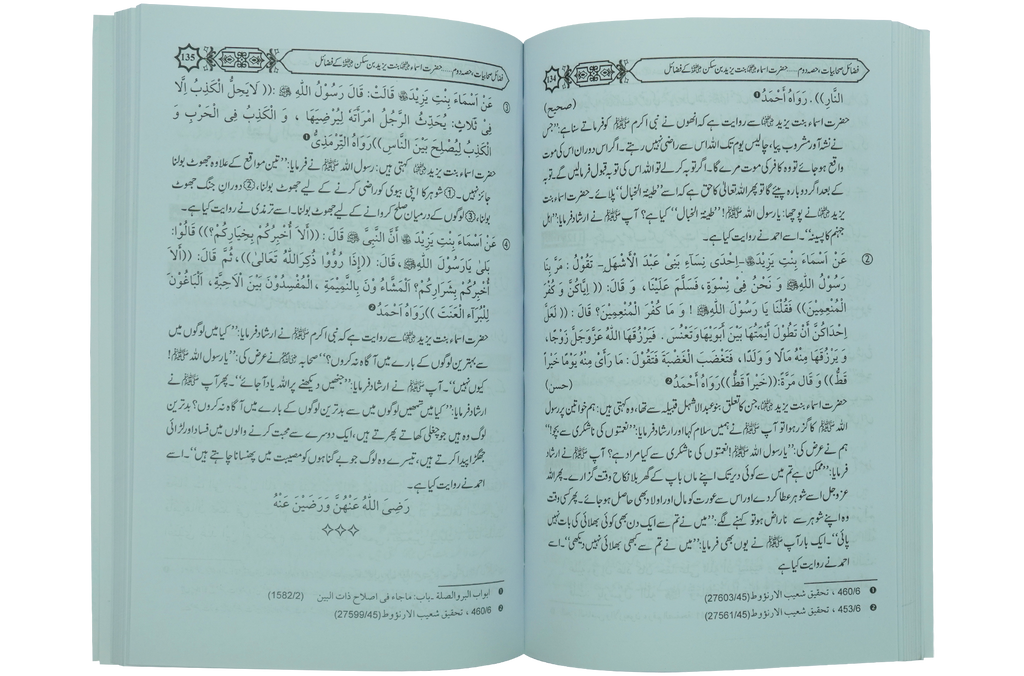 فضائل صحابیات، حصہ دوم ..... حضرت اسماء رضی اللہ عنہا بنت یزید بن سکن رضی اللہ عنہا کے فضائل
134
النَّارِ)). رَوَاهُ أَحْمَدُ❶ (صحیح)
حضرت اسماء بنت یزید رضی اللہ عنہا سے روایت ہے کہ انھوں نے نبی اکرم ﷺ کو فرماتے سنا ہے: ’’جس
نے نشہ آور مشروب پیا، چالیس یوم تک اللہ اس سے راضی نہیں رہتے۔ اگر اس دوران اس کی موت
واقع ہو جائے تو وہ کافر کی موت مرے گا۔ اگر توبہ کر لے تو اللہ اس کی توبہ قبول فرمالیں گے۔ توبہ
کے بعد اگر دوبارہ پیئے گا تو پھر اللہ تعالیٰ کا حق ہے کہ اسے ’’طینۃ الخبال‘‘ پلائے۔ حضرت اسماء بنت
یزید رضی اللہ عنہا نے پوچھا: یا رسول اللہ ﷺ! ’’طینۃ الخبال‘‘ کیا ہے؟ آپ ﷺ نے ارشاد فرمایا: ’’اہل
جہنم کا پسینہ‘‘۔ اسے احمد نے روایت کیا ہے۔
② عَنْ أَسْمَاءَ بِنْتِ يَزِيْدَ رضی اللہ عنہا -إِحْدَى نِسَاءِ بَنِى عَبْدِ الْأَشْهَلِ- تَقُوْلُ: مَرَّ بِنَا
رَسُوْلُ اللّٰهِ ﷺ وَ نَحْنُ فِى نِسْوَةٍ، فَسَلَّمَ عَلَيْنَا، وَ قَالَ: ((إِيَّاكُنَّ وَ كُفْرَ
الْمُنْعِمِيْنَ)) فَقُلْنَا يَا رَسُوْلَ اللّٰهِ ﷺ! وَ مَا كُفْرُ الْمُنْعِمِيْنَ؟ قَالَ: ((لَعَلَّ
إِحْدَاكُنَّ أَنْ تَطُوْلَ أَيْمَتُهَا بَيْنَ أَبَوَيْهَا وَ تَعْنُسَ. فَيَرْزُقَهَا اللّٰهُ عَزَّوَجَلَّ زَوْجًا،
وَ يَرْزُقَهَا مِنْهُ مَالًا وَ وَلَدًا، فَتَغْضَبَ الْغَضْبَةَ فَتَقُوْلَ: مَا رَأَىْ مِنْهُ يَوْمًا خَيْراً
قَطُّ)) وَ قَالَ مَرَّةً: ((خَيْراً قَطُّ)) رَوَاهُ أَحْمَدُ❷ (حسن)
حضرت اسماء بنت یزید رضی اللہ عنہا، جن کا تعلق بنو عبدالاشہل قبیلہ سے تھا، وہ کہتی ہیں: ہم خواتین پر رسول
اللہ ﷺ کا گزر ہوا تو آپ ﷺ نے ہمیں سلام کہا اور ارشاد فرمایا: ’’نعمتوں کی ناشکری سے بچو!‘‘
ہم نے عرض کی: ’’یا رسول اللہ ﷺ! نعمتوں کی ناشکری سے کیا مراد ہے؟ آپ ﷺ نے ارشاد
فرمایا: ’’ممکن ہے تم میں سے کوئی دیر تک اپنے ماں باپ کے گھر بلا نکاح وقت گزارے۔ پھر اللہ
عزوجل اسے شوہر عطا کر دے اور اس سے عورت کو مال اور اولاد بھی حاصل ہو جائے۔ پھر کسی وقت
وہ اپنے شوہر سے ناراض ہو تو کہنے لگے: ’’میں نے تم سے ایک دن بھی کوئی بھلائی کی بات نہیں
پائی‘‘۔ ایک بار آپ ﷺ نے یوں بھی فرمایا: ’’میں نے تم سے کبھی بھلائی نہیں دیکھی‘‘۔ اسے
احمد نے روایت کیا ہے
❶ 460/6 ، تحقیق شعیب الارنؤوط (27603/45)
❷ 453/6 ، تحقیق شعیب الارنؤوط (27561/45)
فضائل صحابیات، حصہ دوم ..... حضرت اسماء رضی اللہ عنہا بنت یزید بن سکن رضی اللہ عنہا کے فضائل
135
③ عَنْ أَسْمَاءَ بِنْتِ يَزِيْدَ رضی اللہ عنہا قَالَتْ: قَالَ رَسُوْلُ اللّٰهِ ﷺ: ((لَا يَحِلُّ الْكَذِبُ إِلَّا
فِىْ ثَلَاثٍ: يُحَدِّثُ الرَّجُلُ امْرَأَتَهُ لِيُرْضِيَهَا، وَ الْكَذِبُ فِى الْحَرْبِ وَ
الْكَذِبُ لِيُصْلِحَ بَيْنَ النَّاسِ)) رَوَاهُ التِّرْمَذِىُّ❶
حضرت اسماء بنت یزید رضی اللہ عنہا کہتی ہیں: رسول اللہ ﷺ نے فرمایا: ’’تین مواقع کے علاوہ جھوٹ بولنا
جائز نہیں۔ ① شوہر کا اپنی بیوی کو راضی کرنے کے لیے جھوٹ بولنا، ② دورانِ جنگ جھوٹ
بولنا، ③ لوگوں کے درمیان صلح کروانے کے لیے جھوٹ بولنا۔ اسے ترمذی نے روایت کیا ہے۔
④ عَنْ أَسْمَاءَ بِنْتِ يَزِيْدَ رضی اللہ عنہا أَنَّ النَّبِىَّ ﷺ قَالَ: ((أَلَا أُخْبِرُكُمْ بِخِيَارِكُمْ؟)) قَالُوْا:
بَلٰى يَا رَسُوْلَ اللّٰهِ ﷺ، قَالَ: ((إِذَا رُؤُوْا ذُكِرَ اللّٰهُ تَعَالىٰ))، ثُمَّ قَالَ: ((أَلَا
أُخْبِرُكُمْ بِشِرَارِكُمْ؟ اَلْمَشَّاءُ وْنَ بِالنَّمِيْمَةِ، الْمُفْسِدُوْنَ بَيْنَ الْأَحِبَّةِ، اَلْبَاغُوْنَ
لِلْبُرَآءِ الْعَنَتَ)) رَوَاهُ أَحْمَدُ❷
حضرت اسماء بنت یزید رضی اللہ عنہا سے روایت ہے کہ نبی اکرم ﷺ نے ارشاد فرمایا: ’’کیا میں لوگوں میں
سے بہترین لوگوں کے بارے میں آگاہ نہ کروں؟‘‘ صحابہ رضی اللہ عنہم نے عرض کی: ’’یا رسول اللہ ﷺ!
کیوں نہیں‘‘۔ آپ ﷺ نے ارشاد فرمایا: ’’جنھیں دیکھنے پر اللہ یاد آجائے‘‘۔ پھر آپ ﷺ نے
ارشاد فرمایا: ’’کیا میں تمھیں لوگوں میں سے بدترین لوگوں کے بارے میں آگاہ نہ کروں؟ بدترین
لوگ وہ ہیں جو چغلی کھاتے پھرتے ہیں، ایک دوسرے سے محبت کرنے والوں میں فساد اور لڑائی
جھگڑا پیدا کرتے ہیں، تیسرے وہ لوگ جو بے گناہوں کو مصیبت میں پھنسانا چاہتے ہیں‘‘۔ اسے
احمد نے روایت کیا ہے۔
رَضِىَ اللّٰهُ عَنْهُنَّ وَرَضَيْنَ عَنْهُ
❶ ابواب البر والصلة ۔باب: ماجاء فی اصلاح ذات البین (1582/2)
❷ 460/6 ، تحقیق شعیب الارنؤوط (27599/45)